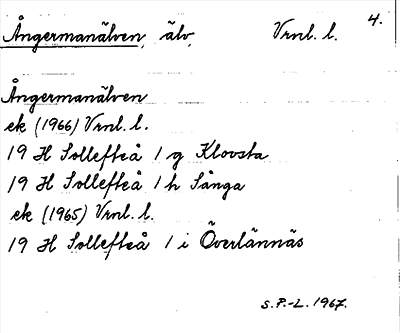 Ångermanälven, älv, Vrnl. l. 4.
Ångermanälven
ek (1966) Vrnl. l.
19 H Sollefteå 1 g Klovsta
19 H Sollefteå 1 h Sånga
ek (1965) Vrnl. l.
19 H Sollefteå 1 i Överlännäs
S.P.-L. 1967.